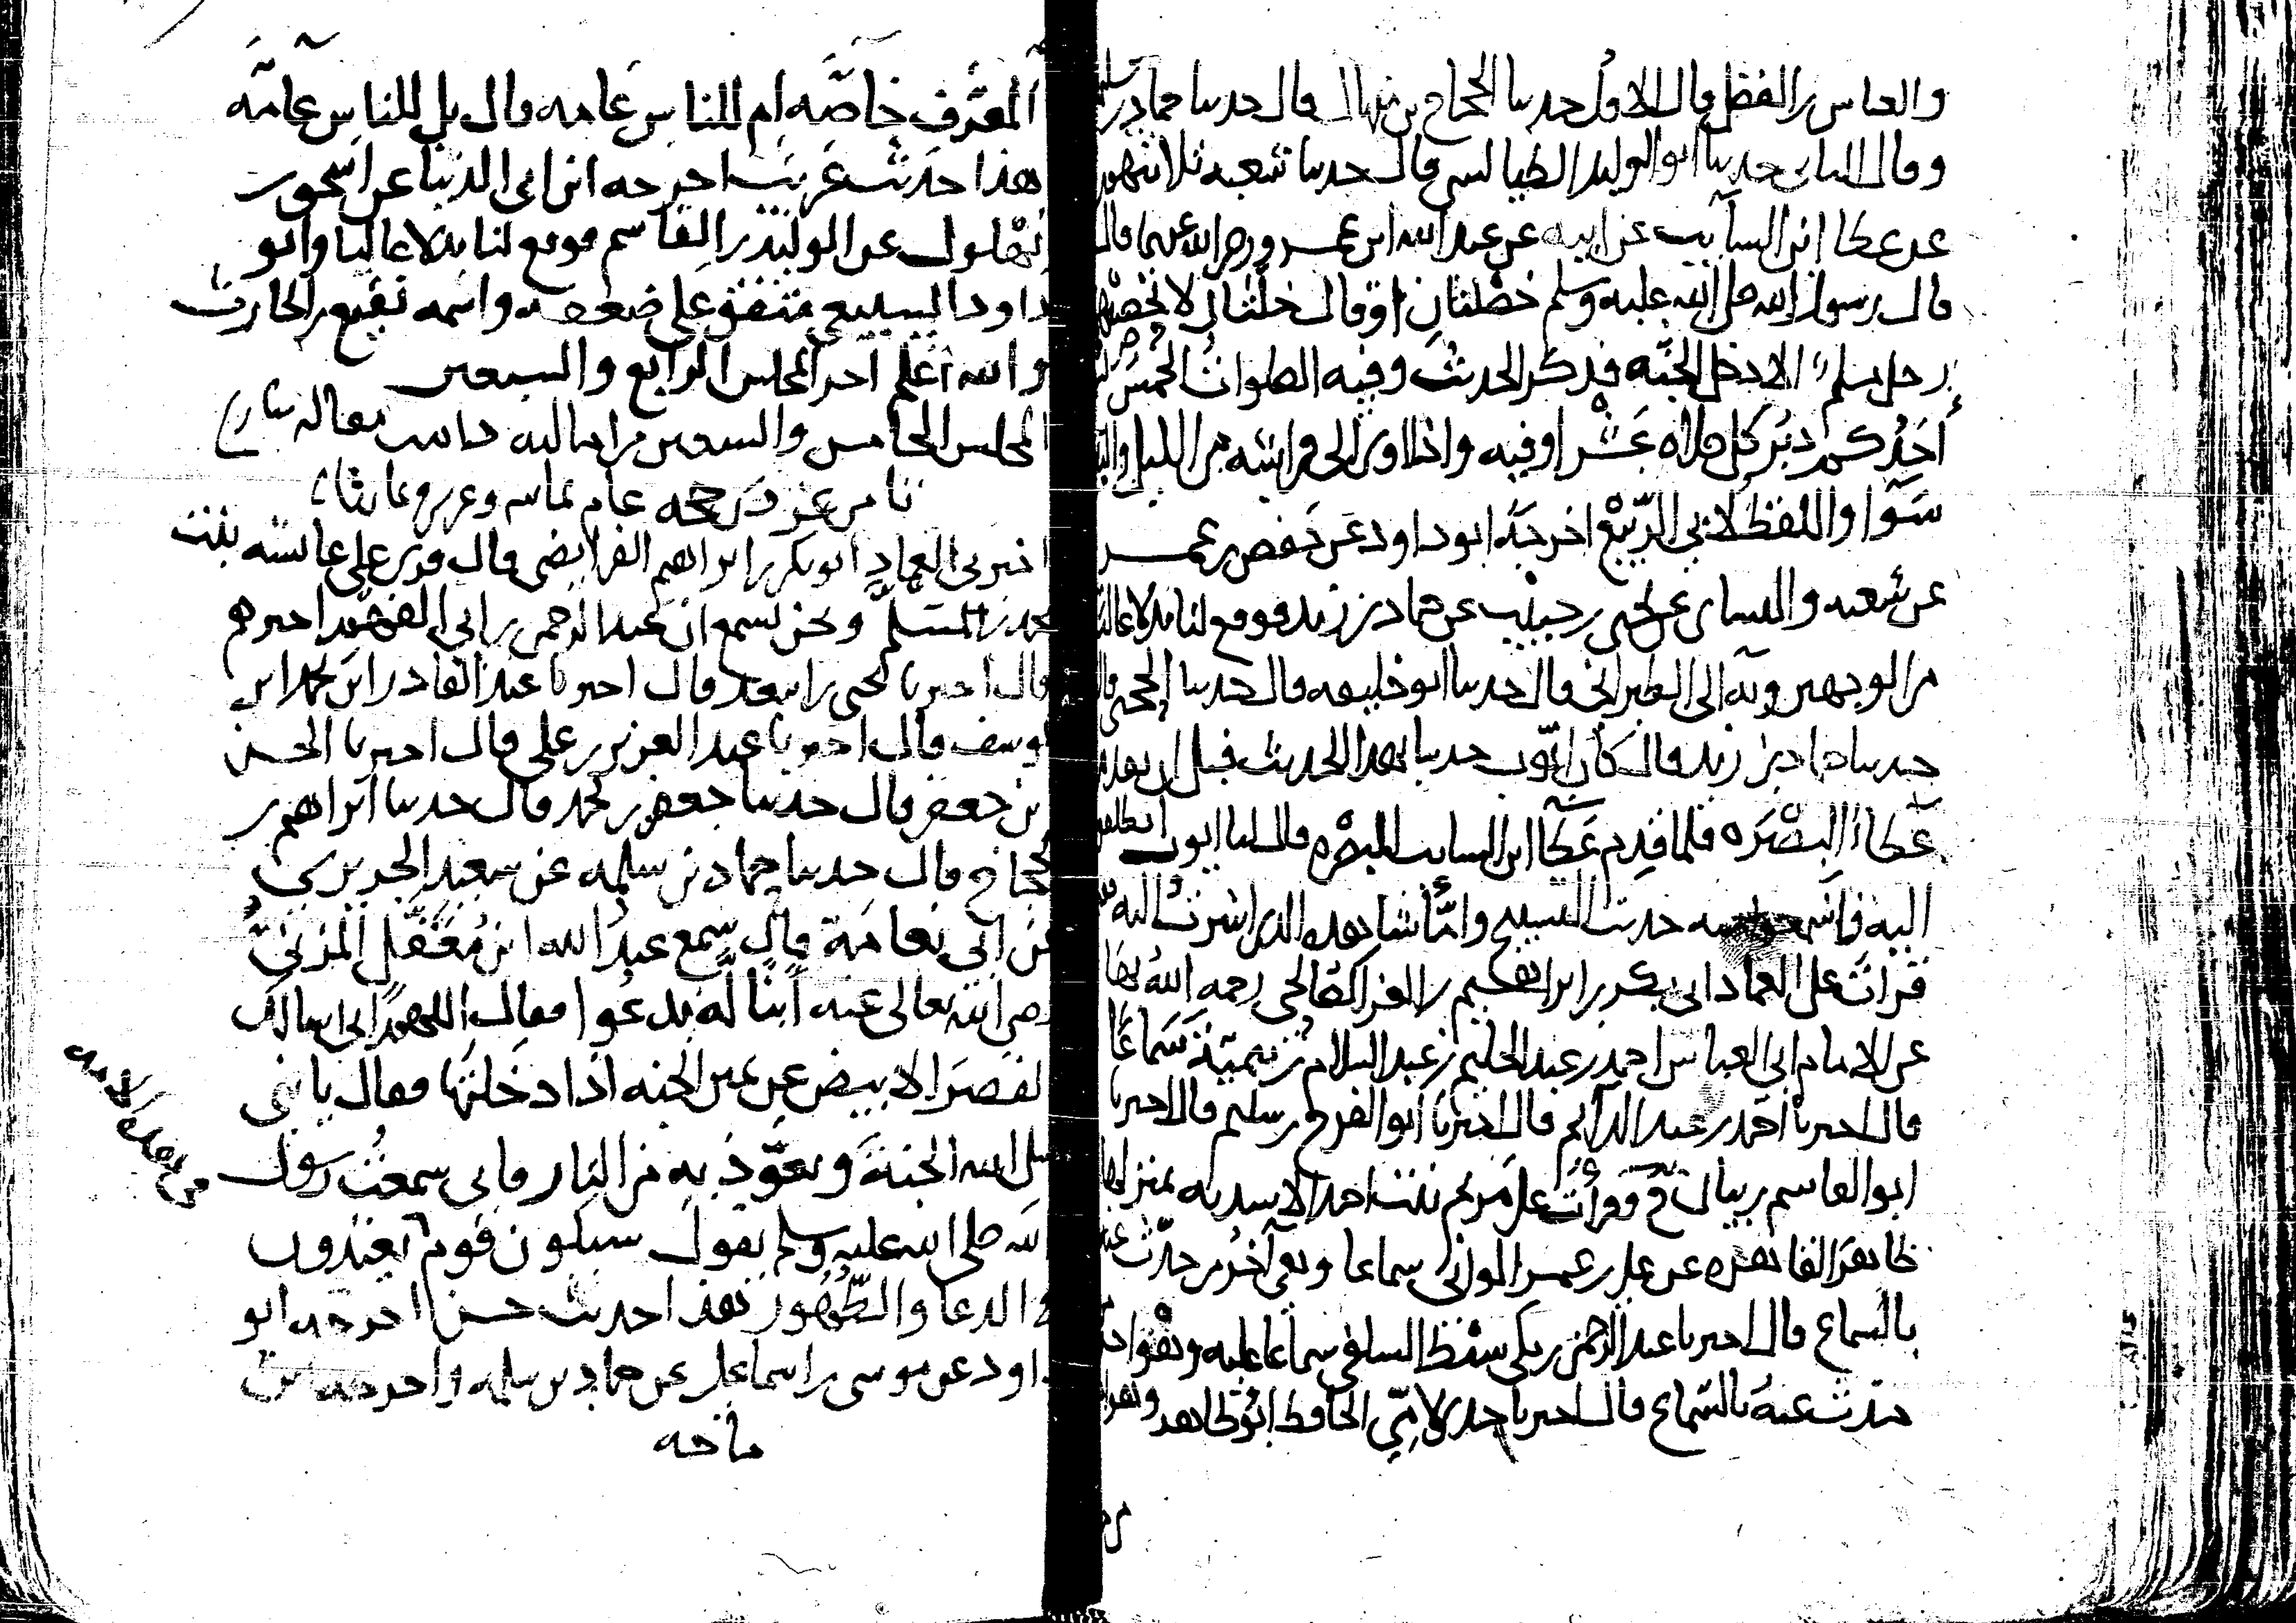 والعباس بن الفضل قال الاول حدثنا الحجاج بن منهال قال حدثنا حماد بن سلمة
وقال الثاني حدثنا ابو الوليد الطيالسي قال حدثنا شعبه ثلاثتهم
عن عطا ابن السائب عن ابيه عن عبد الله ابن عمرو رضي الله عنهما قال
قال رسول الله صلى الله عليه وسلم خصلتان او قال خلتان لا يحصيهما
رجل مسلم الا دخل الجنه فذكر الحديث وفيه الصلوات الخمس
احدكم دبر كل صلاه عشرا وفيه واذا اوى الى فراشه من الليل والباقي
سوا واللفظ لابي الربيع اخرجه ابو داود عن حفص بن عمر
عن شعبه والنساى عن يحيى بن حبيب عن حماد بن زيد فوقع لنا بدلا عاليا
من الوجهين وبه الى الطبراني قال حدثنا ابو خليفه قال حدثنا الحجبي قال
حدثنا حماد بن زيد قال كان ايوب حدثنا بهذا الحديث قبل ان يقدم
عطاء البصره فلما قدم عطا ابن السائب البصره قال لنا ايوب انطلقوا
اليه فاسمعوا منه حديث التسبيح واما شاهده الذي اشرت اليه
قرات على العماد ابي بكر بن ابراهيم بن العز الصالحي رحمه الله بها
عن الامام ابي العباس احمد بن عبد الحليم بن عبد السلام بن تيمية سماعا
قال اخبرنا احمد بن عبد الدائم قال اخبرنا ابو الفرج بن سليم قال اخبرنا
ابو القاسم بن بيان ح وقرات على مريم بنت احمد الاسديه بمنزلها
ظاهر القاهره عن علي بن عمر الواني سماعا وهي اخر من حدث عنه
بالسماع قال اخبرنا عبد الرحمن بن مكي سبط السلفي سماعا عليه وهو اخر من
حدث عنه بالسماع قال اخبرنا جدي لامي الحافظ ابو طاهر وهو
المعترف خاصه ام للناس عامه قال بل للناس عامه
هذا حديث غريب اخرجه ابن ابي الدنيا عن اسحق بن
بهلول عن الوليد بن القاسم فوقع لنا بدلا عاليا وابو
داود السبيعي متفق على ضعفه واسمه نفيع بن الحارث
والله اعلم اخر المجلس الرابع والسبعين
المجلس الخامس والسبعين من اماليه
عام ثمانيه وعشرين وثمانماية
اخبرني العماد ابو بكر بن ابراهيم الفرايضي قال قري على عايشه بنت
محمد بن المسلم ونحن نسمع ان عبد الرحمن بن ابي الفهم اخبرهم
قال اخبرنا يحيى بن اسعد قال اخبرنا عبد القادر ابن محمد ابن
يوسف قال اخبرنا عبد العزيز بن علي قال اخبرنا الحسن
بن جعفر قال حدثنا جعفر بن محمد قال حدثنا ابراهيم بن
الحجاج قال حدثنا حماد بن سلمه عن سعيد الجريري
عن ابي نعامة قال سمع عبد الله ابن مغفل المزني
رضي الله تعالى عنه ابنا له يدعوا فقال اللهم اني اسالك
القصر الابيض عن يمين الجنه اذا دخلتها فقال يا بني
سل الله الجنة وتعوذ به من النار فاني سمعت رسول
الله صلى الله عليه وسلم يقول سيكون قوم يعتدون
في الدعا والطهور هذا حديث حسن اخرجه ابو
داود عن موسى بن اسماعيل عن حماد بن سلمه واخرجه ابن
ماجه
في هذه الامه